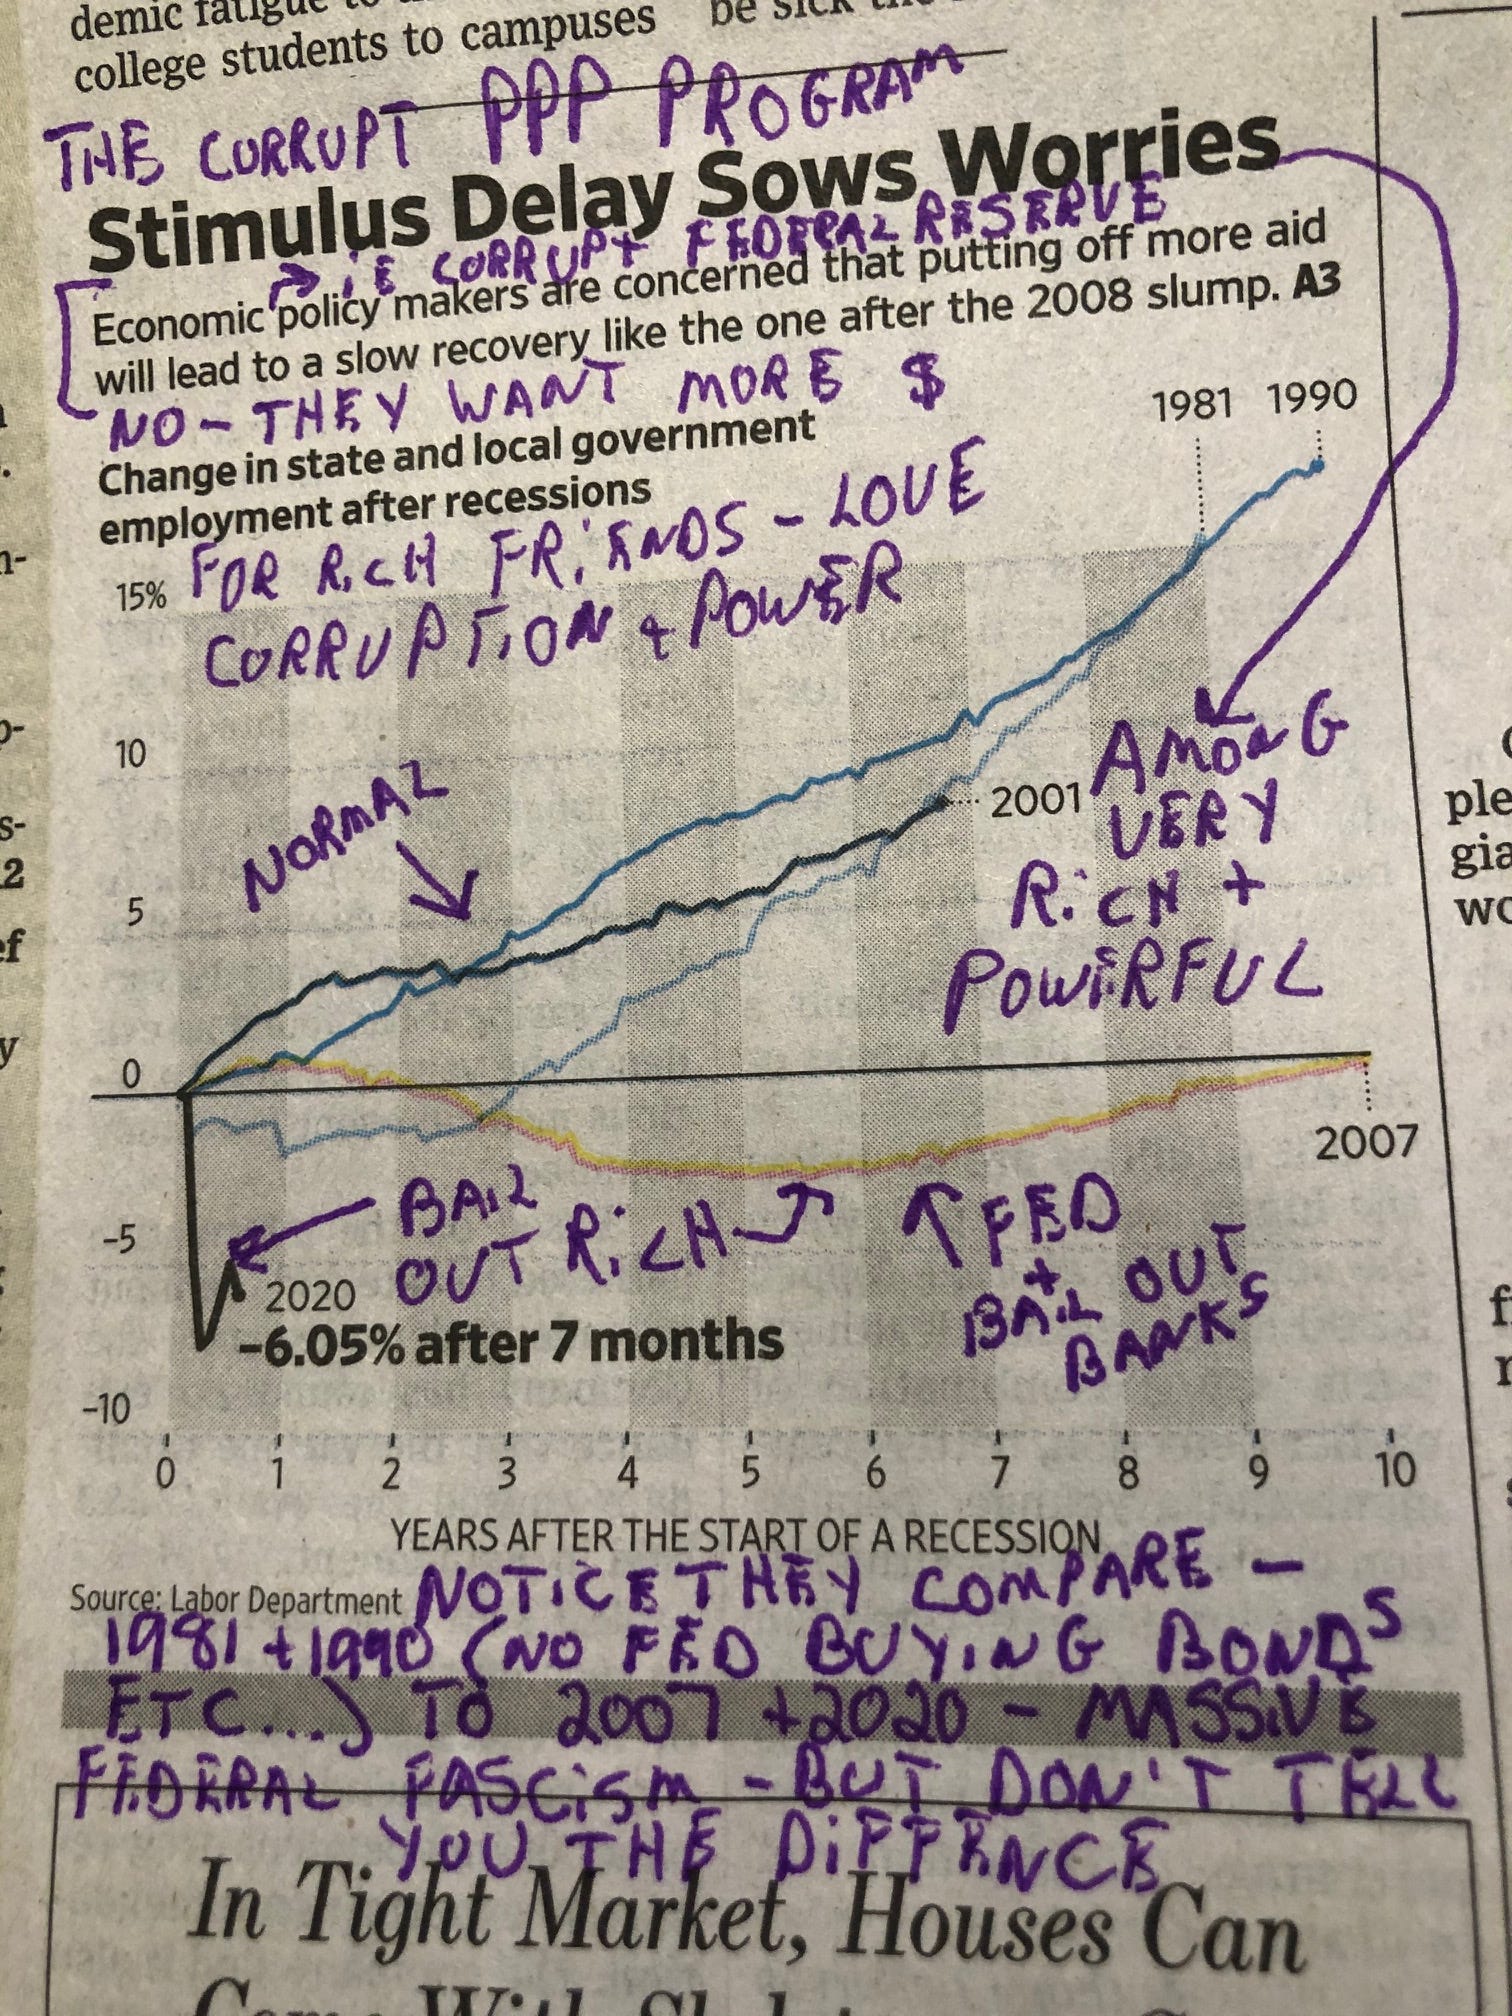 demic fatigue to
college students to campuses
be sick the
THE CORRUPT PPP PROGRAM
Stimulus Delay Sows Worries
→ i E CORRUPT FEDERAL RESERVE
Economic policy makers are concerned that putting off more aid
will lead to a slow recovery like the one after the 2008 slump. A3
NO - THEY WANT MORE $
Change in state and local government
employment after recessions
FOR RicH FRiENDS - LOVE
CORRUPTiON + POWER
1981 1990
15%
10
5
0
-5
-10
NORMAL
2001
AMONG
VERY
RicH +
POWERFUL
2007
BAIL
OUT RicH
FED
+
BAIL OUT
BANKS
2020
-6.05% after 7 months
0 1 2 3 4 5 6 7 8 9 10
YEARS AFTER THE START OF A RECESSION
Source: Labor Department
NOTiCE THEY COMPARE -
1981 + 1990 (NO FED BUYiNG BONDS
ETC...) TO 2007 + 2020 - MASSiVE
FEDERAL FASCiSM - BUT DON'T TELL
YOU THE DiFFENCE
In Tight Market, Houses Can
Come With
ple
gia
wo
ef
y